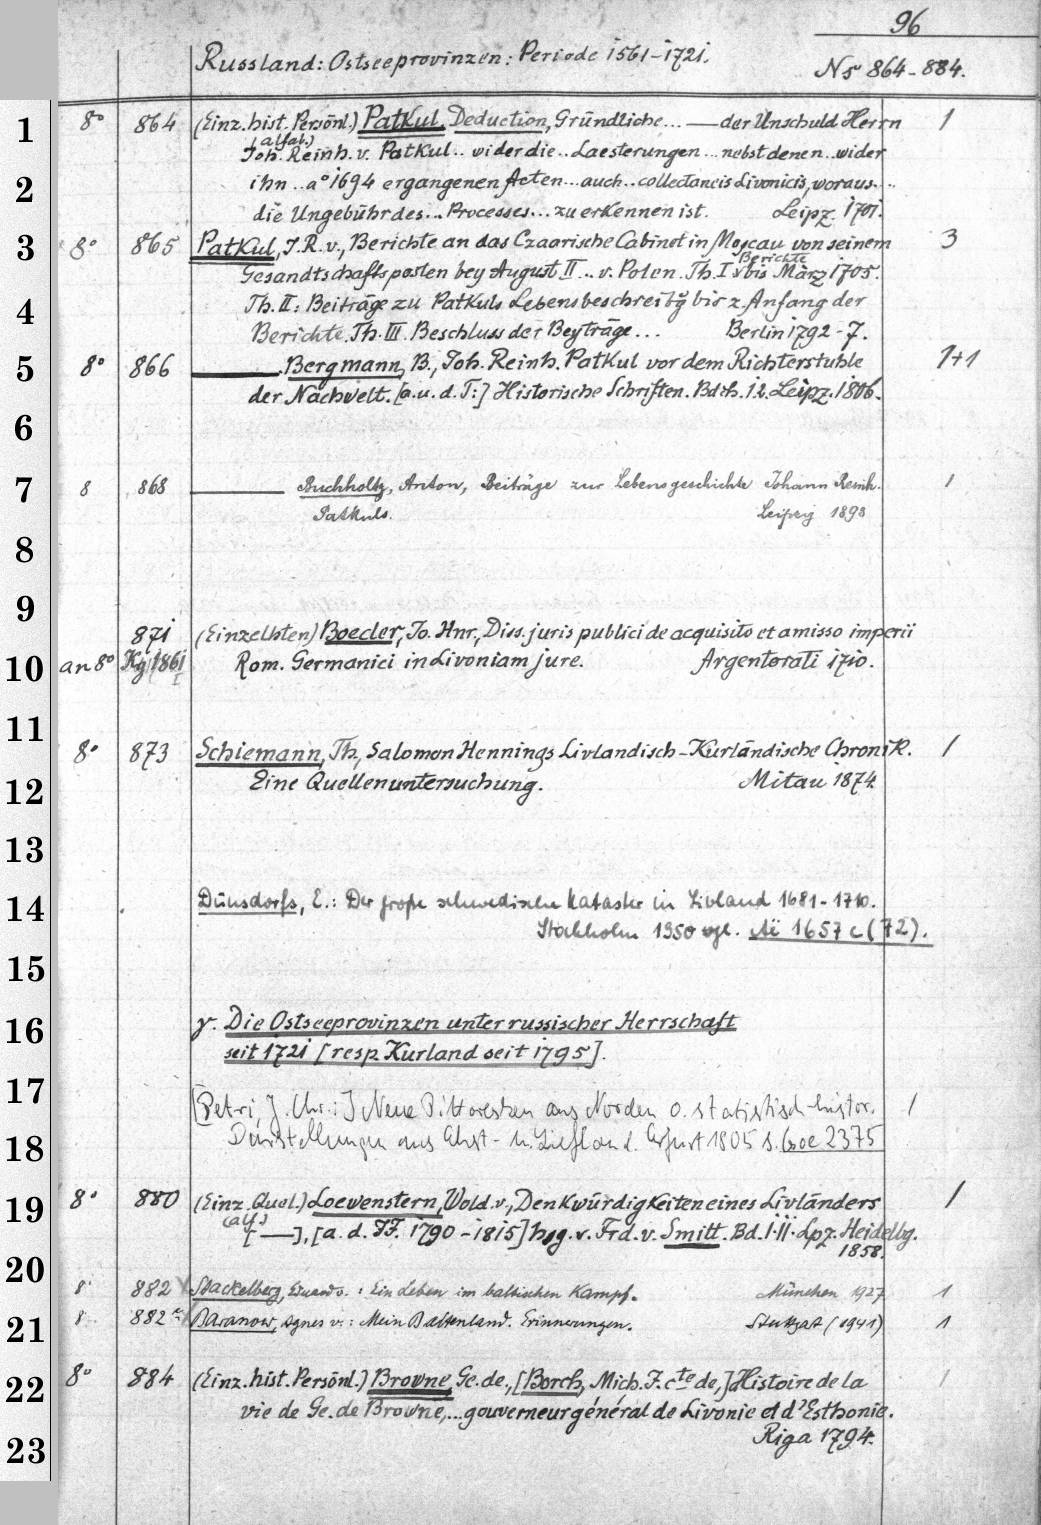 96
Russland: Ostseeprovinzen: Periode 1561-1721.
Nr 864-884.
1 8° 864 (Einz. hist. Persönl.) Patkul, Deduction, Gründliche... — der Unschuld Herrn 1
(alfab.)
Joh. Reinh. v. Patkul.. wider die.. Laesterungen... nebst denen.. wider
2 ihn.. a° 1694 ergangenen Acten... auch.. collectaneis Livonicis, woraus...
die Ungebühr des... Processes... zu erkennen ist. Leipz. 1701.
3 8° 865 Patkul, J. R. v., Berichte an das Czaarische Cabinet in Moscau von seinem 3
Berichte
Gesandtschaftsposten bey August II... v. Polen. Th. I bis März 1705.
4 Th. II: Beiträge zu Patkuls Lebensbeschreibg bis z. Anfang der
Berichte. Th. III. Beschluss der Beyträge... Berlin 1792-7.
5 8° 866 — Bergmann, B., Joh. Reinh. Patkul vor dem Richterstuhle 1+1
der Nachwelt. [a. u. d. T:] Historische Schriften. Bdch. 1.2. Leipz. 1806.
6
7 8 868 — Buchholtz, Anton, Beiträge zur Lebensgeschichte Johann Reinh. 1
Patkuls. Leipzig 1893
8
9
871 (Einzelhten) Boecler, Jo. Hnr., Diss. juris publici de acquisito et amisso imperii
10 an 8° Kg 1861 Rom. Germanici in Livoniam jure. Argentorati 1710.
I
11
8° 873 Schiemann, Th., Salomon Hennings Livlandisch-Kurländische Chronik. 1
12 Eine Quellenuntersuchung. Mitau 1874.
13
14 Dunsdorfs, E.: Der große schwedische Kataster in Livland 1681-1710.
Stockholm 1950 vgl. Aï 1657 c (72).
15
16 γ. Die Ostseeprovinzen unter russischer Herrschaft
seit 1721 [resp. Kurland seit 1795].
17 [Petri, J. Chr.:] Neue Pittoresken aus Norden o. statistisch-histor. 1
18 Darstellungen aus Ehst- u. Liefland. Erfurt 1805 s. 2375
19 8° 880 (Einz. Quel.) Loewenstern, Wold. v., Denkwürdigkeiten eines Livländers 1
(alf.)
[—], [a. d. JJ. 1790-1815] hsg. v. Frd. v. Smitt. Bd. I.II. Lpz. Heidelbg.
1858.
20 8° 882 Stackelberg, Eduard v.: Ein Leben im baltischen Kampf. München 1927 1
21 8° 882 a Baranow, Agnes v.: Mein Baltenland. Erinnerungen. Stuttgart (1941) 1
22 8° 884 (Einz. hist. Persönl.) Browne, Ge. de., [Borch, Mich. J. cte de,] Histoire de la 1
vie de Ge. de Browne,... gouverneur général de Livonie et d'Esthonie.
23 Riga 1794.